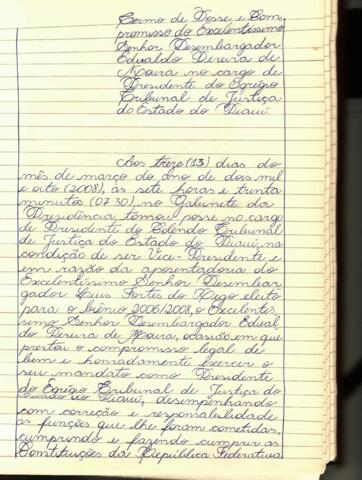 Termo de Posse e Com
promisso do Excelentíssimo
Senhor Desembargador
Edvaldo Pereira de
Moura no cargo de
Presidente do Egrégio
Tribunal de Justiça
do Estado do Piauí.
Aos treze (13) dias do
mês de março do ano de dois mil
e oito (2008), às sete horas e trinta
minutos (07:30), no Gabinete da
Presidência, tomou posse no cargo
de Presidente do Colendo Tribunal
de Justiça do Estado do Piauí, na
condição de ser Vice-Presidente e
em razão da aposentadoria do
Excelentíssimo Senhor Desembar
gador Luis Fortes do Rego eleito
para o biênio 2006/2008, o Excelentís
simo Senhor Desembargador Edval
do Pereira de Moura, ocasião em que
prestou o compromisso legal de
bem e honradamente exercer o
seu mandato como Presidente
do Egrégio Tribunal de Justiça do
Estado do Piauí, desempenhando
com correção e responsabilidade
as funções que lhe foram cometidas,
cumprindo e fazendo cumprir as
Constituições da República Federativa